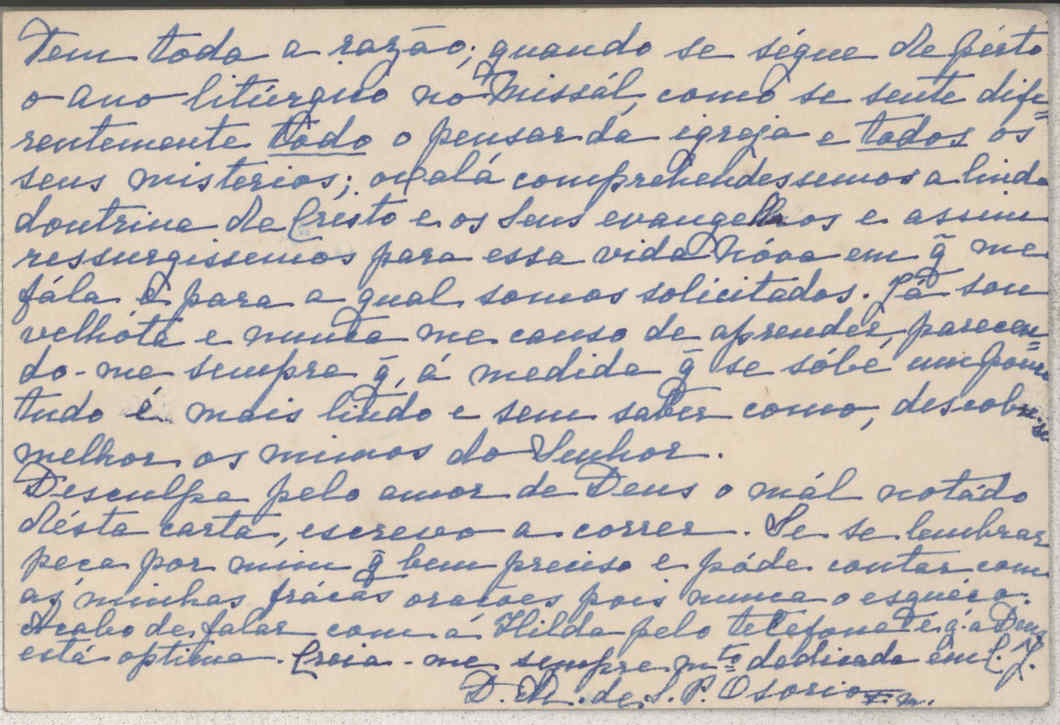 Tem toda a razão; quando se ségue de pérto
o ano litúrgico no Missál, como se sente dife=
rentemente todo o pensar da igreja e todos os
seus misterios; oxalá comprehendessemos a linda
doutrina de Cristo e os seus evangelhos e assim
ressurgissemos para essa vida nóva em q̃ me
fála e para a qual somos solicitados. Já sou
velhóta e nunca me canso de aprender, parecen=
do-me sempre q̃, á medida q̃ se sóbe um pouco
tudo é mais lindo e sem saber como, descobre-se
melhor os mimos do Senhor.
Desculpe pelo amor de Deus o mál notádo
désta carta, escrevo a correr. Se se lembrar
peça por mim q̃ bem preciso e póde contar com
as minhas frácas orações pois nunca o esquéço.
Acabo de falar com a Hilda pelo telefone e q̃ a Deus
está optima. Creia-me sempre mto dedicada em C. J.
D. M. de S. P. Osorio